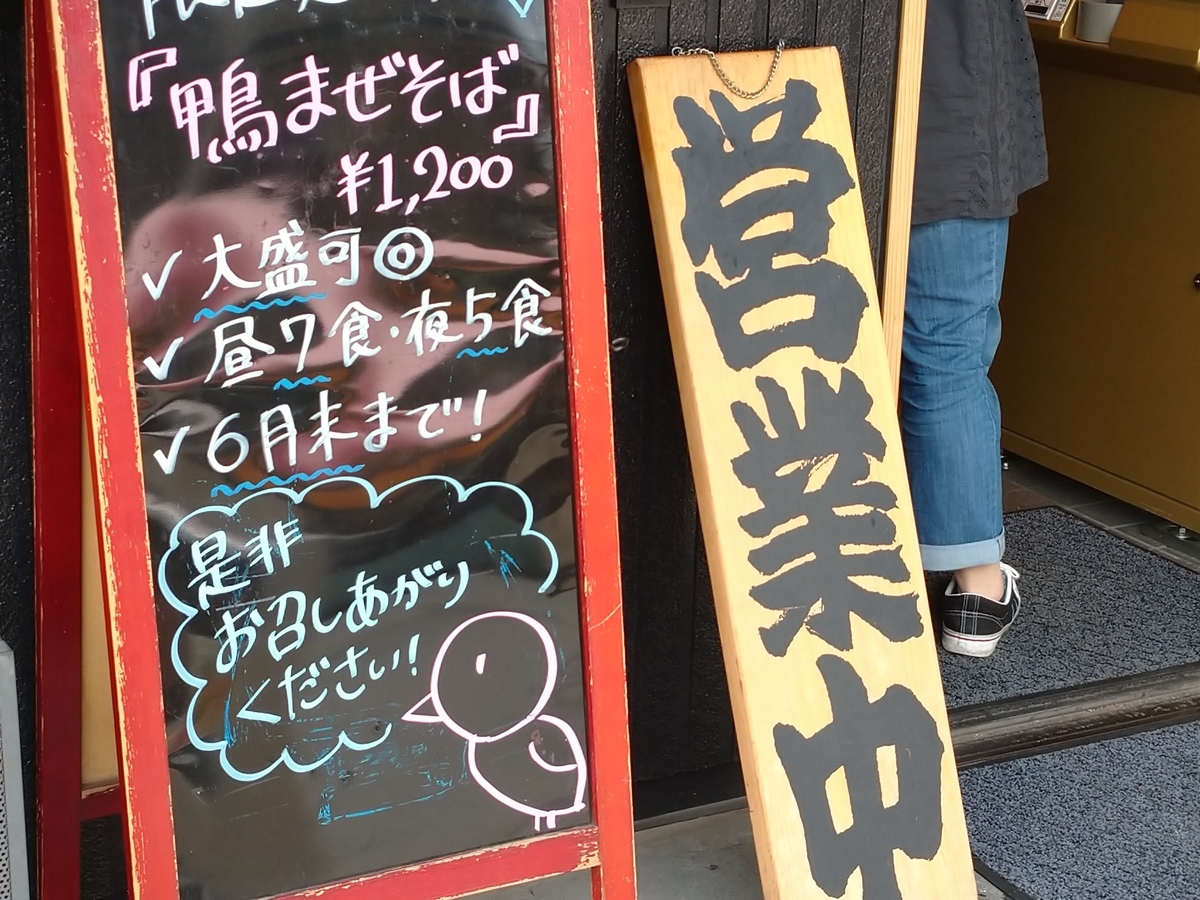 『鴨まぜそば』
¥1,200
✓大盛可◎
✓昼7食・夜5食
✓6月末まで!
是非
お召しあがり
ください!
営業中